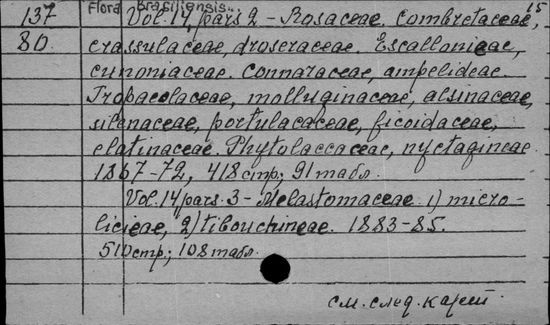 Flora Brasiliensis
15
137 Vol. 14, pars 2 - Rosaceae. Combretaceae,
80. crassulaceae, droseraceae. Escallonieae,
cunoniaceae. Connaraceae, ampelideae.
Tropaeolaceae, molluginaceae, alsinaceae,
silenaceae, portulacaceae, ficoidaceae,
elatinaceae. Phytolaccaceae, nyctagineae
1867-72, 418 стр; 91 табл.
Vol. 14 pars. 3 - Melastomaceae. 1) micro-
licieae, 2) tibouchineae. 1883-85.
510 стр; 108 табл.
см. след. карт